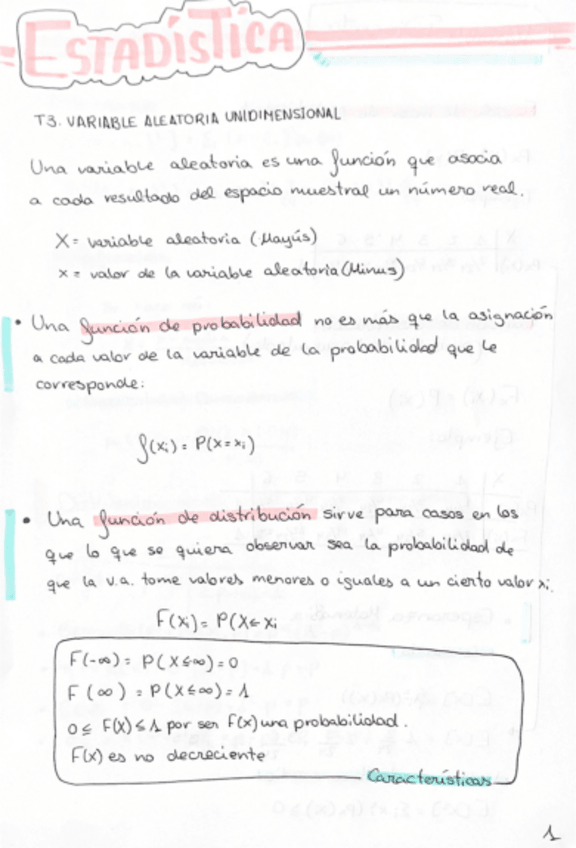 ESTADÍSTICA
T3. VARIABLE ALEATORIA UNIDIMENSIONAL
Una variable aleatoria es una función que asocia
a cada resultado del espacio muestral un número real.
X = variable aleatoria (Mayús)
x = valor de la variable aleatoria (Minus)
• Una función de probabilidad no es más que la asignación
a cada valor de la variable de la probabilidad que le
corresponde:
f(xi) = P(x=xi)
• Una función de distribución sirve para casos en los
que lo que se quiera observar sea la probabilidad de
que la v.a. tome valores menores o iguales a un cierto valor xi.
F(xi) = P(X≤xi
F(-∞) = P(X≤∞) = 0
F(∞) = P(X≤∞) = 1
0 ≤ F(X) ≤ 1 por ser F(x) una probabilidad.
F(x) es no decreciente
Características
1